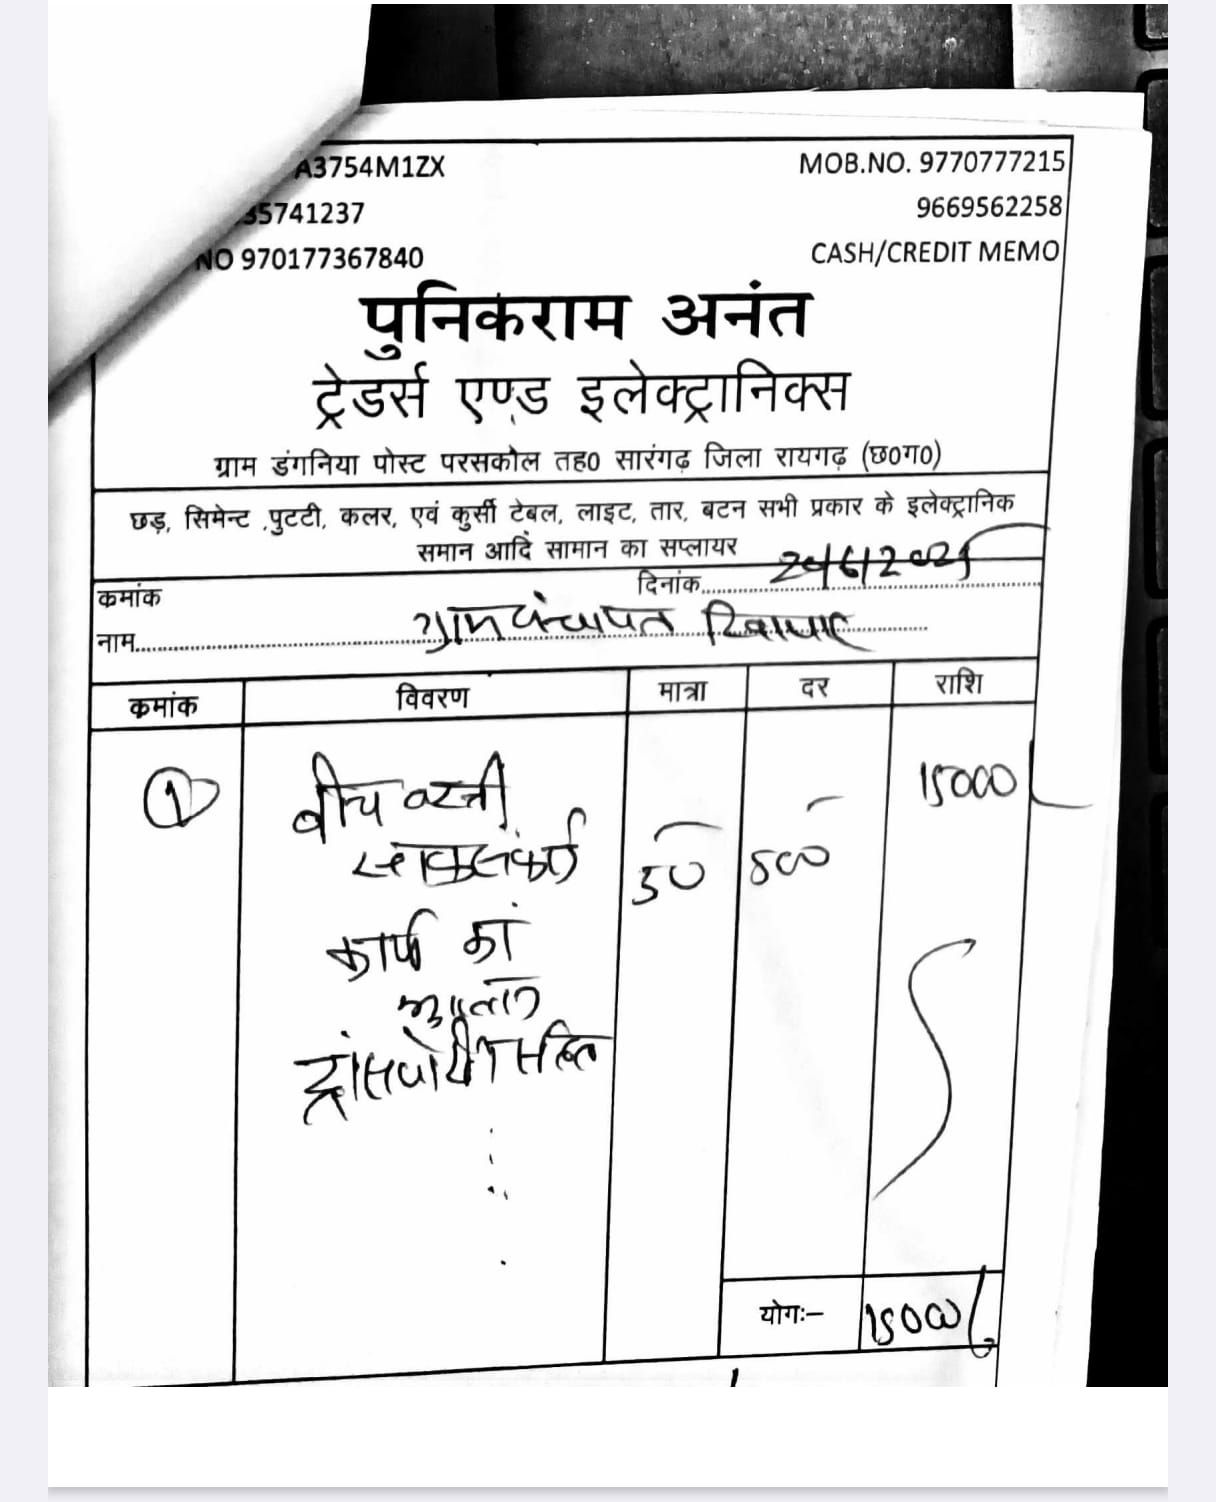 A3754M1ZX
MOB.NO. 9770777215
35741237
9669562258
NO 970177367840
CASH/CREDIT MEMO
पुनिकराम अनंत
ट्रेडर्स एण्ड इलेक्ट्रानिक्स
ग्राम डंगनिया पोस्ट परसकोल तह0 सारंगढ़ जिला रायगढ़ (छ0ग0)
छड़, सिमेन्ट ,पुटटी, कलर, एवं कुर्सी टेबल, लाइट, तार, बटन सभी प्रकार के इलेक्ट्रानिक
समान आदि सामान का सप्लायर
कमांक
दिनांक
नाम ग्राम पंचायत
कमांक विवरण मात्रा दर राशि
1 बीच बस्ती 15000
50
कार्य का
ट्रांसपोर्टिंग सहित
योगः- 15000/